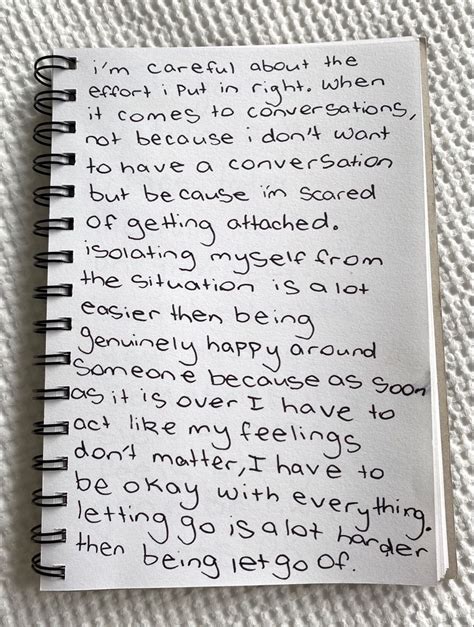 i'm careful about the
effort i put in right. when
it comes to conversations,
not because i don't want
to have a conversation
but because i'm scared
of getting attached.
isolating myself from
the situation is a lot
easier then being
genuinely happy around
someone because as soon
as it is over I have to
act like my feelings
don't matter, I have to
be okay with everything.
letting go is a lot harder
then being let go of.